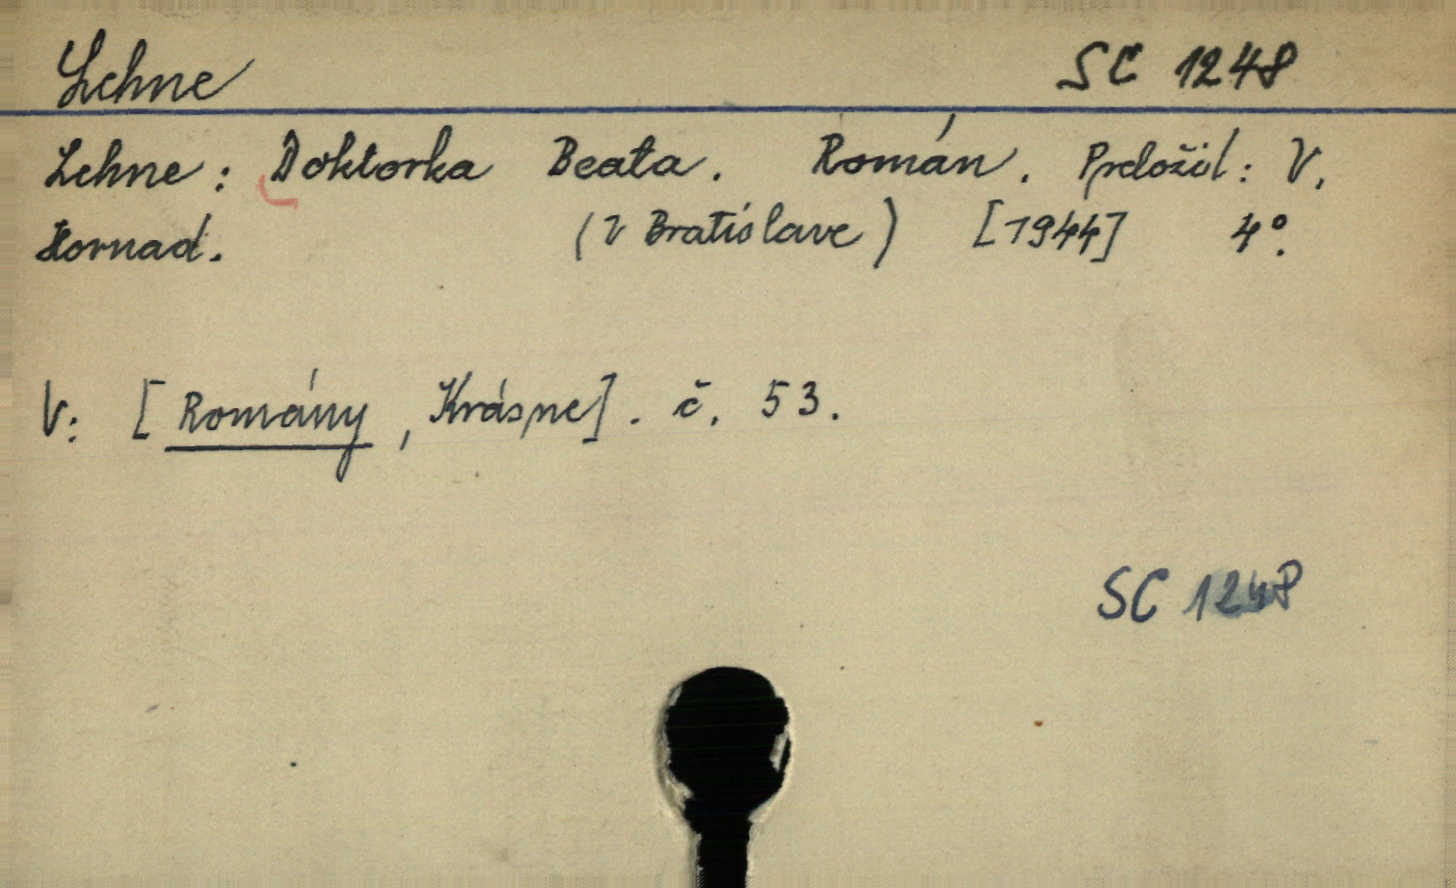 Lehne SC 1248
Lehne: Doktorka Beata. Román. Preložil: V.
Hornad. (V Bratislave) [1944] 4°.
V: [Romány, Krásne]. č. 53.
SC 1248